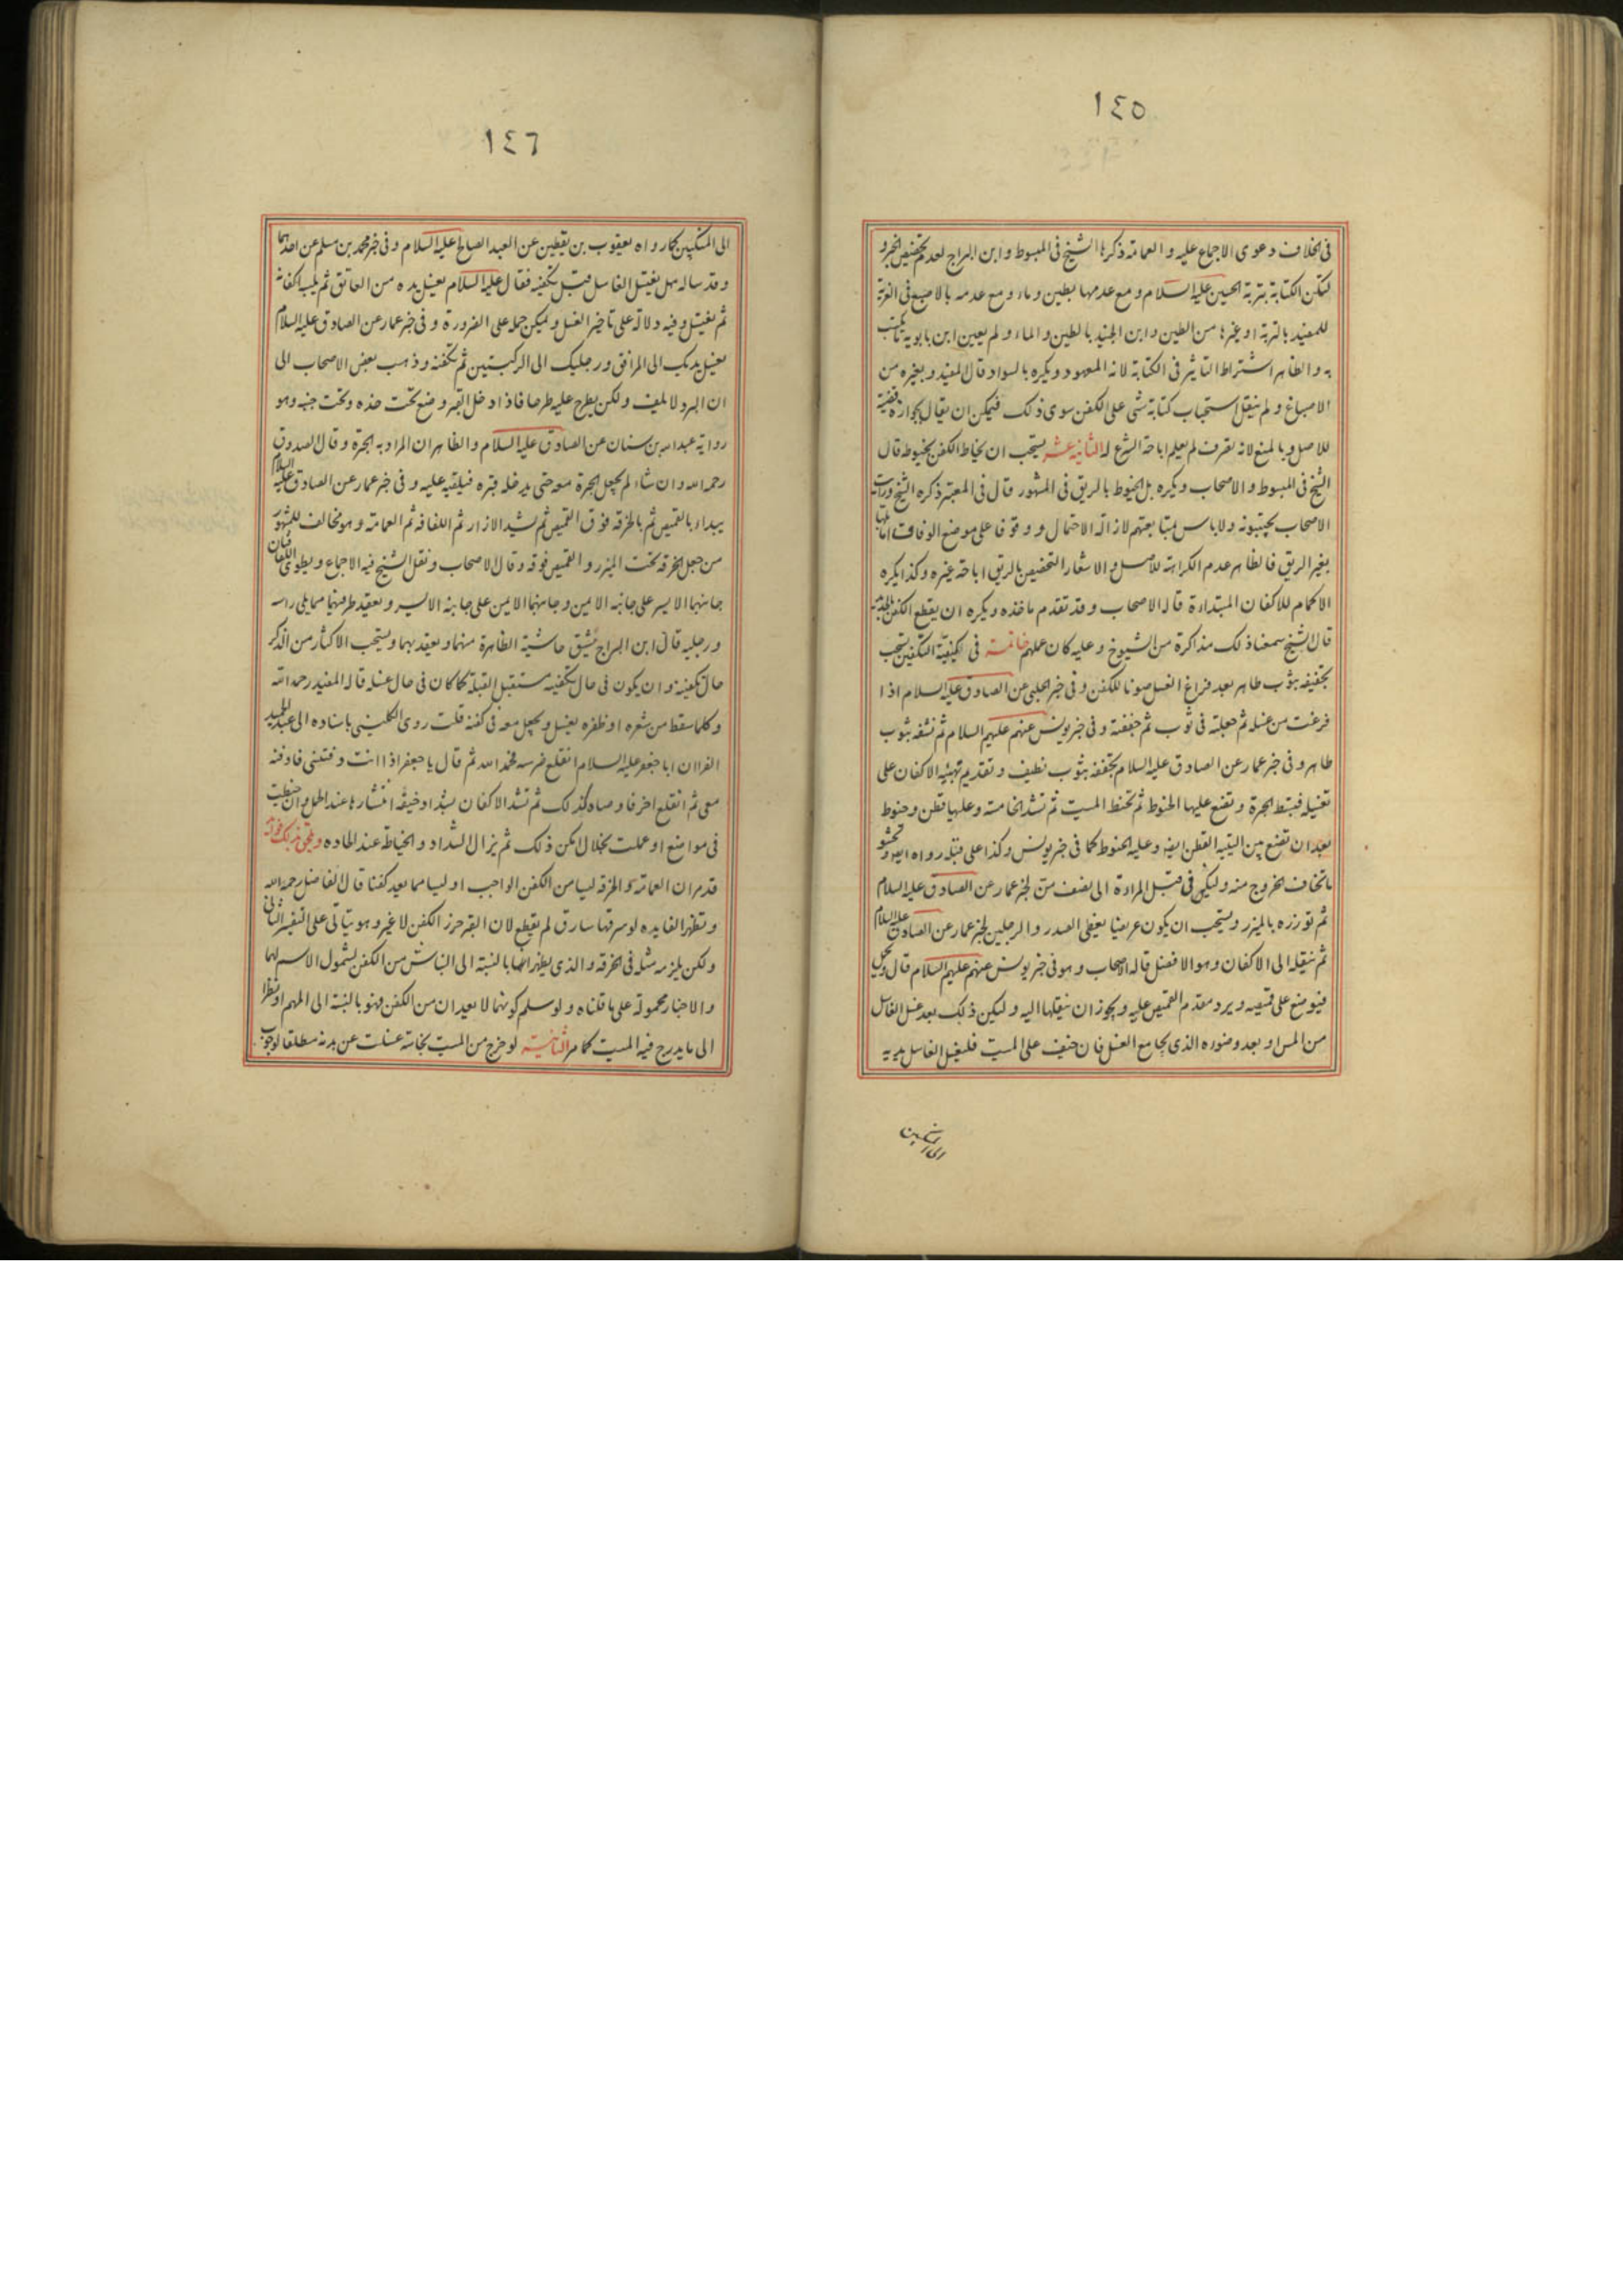 ١٤٥
فى الخلاف دعوى الاجماع عليه والعمامة ذكرها الشيخ فى المبسوط وابن البراج لعدم تخصيص الخبر و
لتكن الكتابة بتربة الحسين عليه السلام ومع عدمها بطين وماء ومع عدمه بالاصبع فى الغرية
للمفيد بالتربة او غيرها من الطين وابن الجنيد بالطين والماء ولم يعين ابن بابويه ما يكتب
به والظاهر اشتراط التاثير فى الكتابة لانه المعهود ويكره بالسواد قال المفيد وبغيره من
الاصباغ ولم ينقل استحباب كتابة شى على الكفن سوى ذلك فيمكن ان يقال بجوازه قضية
للاصل وبالمنع لانه تصرف لم يعلم اباحة الشرع له الثانية عشر يستحب ان يخاط الكفن بخيوطه قال
الشيخ فى المبسوط والاصحاب ويكره بل الخيوط بالريق فى المشهور قال فى المعتبر ذكره الشيخ ورايت
الاصحاب يجتنبونه ولا باس بمتابعتهم لازالة الاحتمال ووقوفا على موضع الوفاق اما بلها
بغير الريق فالظاهر عدم الكراهة للاصل والاشعار التخصيص بالريق اباحة غيره وكذا يكره
الاكمام للاكفان المبتداءة قاله الاصحاب وقد تقدم ماخذه ويكره ان يقطع الكفن بالحديد
قال الشيخ سمعنا ذلك مذاكرة من الشيوخ وعليه كان عملهم خاتمة فى كيفية التكفين يستحب
تجفيفه بثوب طاهر بعد فراغ الغسل صونا للكفن وفى خبر الحلبى عن الصادق عليه السلام اذا
فرغت من غسله ثم جعلته فى ثوب ثم جففته وفى خبر يونس عنهم عليهم السلام ثم نشفه بثوب
طاهر وفى خبر عمار عن الصادق عليه السلام تجففه بثوب نظيف وتقديم تهيئة الاكفان على
تغسيله فتبسط الحبرة وتضع عليها الحنوط ثم تحنط الميت ثم تشد الخامسة وعليها قطن وحنوط
بعد ان تضع بين اليتيه القطن ايضا وعليه الحنوط كما فى خبر يونس وكذا على قبله رواه ايضا وتحشو
ما تخاف الخروج منه وليكن فى قبل المراة الى نصف من لخبر عمار عن الصادق عليه السلام
ثم توزره بالمئزر ويستحب ان يكون عريضا يغطى الصدر والرجلين لخبر عمار عن الصادق عليه السلام
ثم ينقله الى الاكفان وهو الافضل قاله الاصحاب وهو فى خبر يونس عنهم عليهم السلام قال ويحمل
فيوضع على قميصه ويرد مقدم القميص عليه ويجوز ان ينقلها اليه وليكن ذلك بعد غسل الغاسل
من المس او بعد وضوءه الذى يجامع الغسل فان خيف على الميت فليغسل الغاسل يديه
الى المنكبين
١٤٦
الى المنكبين كما رواه يعقوب بن يقطين عن العبد الصالح عليه السلام وفى خبر محمد بن مسلم عن احدهما
وقد ساله هل يغتسل الغاسل قبل تكفينه فقال عليه السلام يغسل يده من العاتق ثم يلبسه اكفانه
ثم يغتسل وفيه دلالة على تاخير الغسل ويمكن حمله على الضرورة وفى خبر عمار عن الصادق عليه السلام
تغسل يديك الى المرافق ورجليك الى الركبتين ثم تكفنه وذهب بعض الاصحاب الى
ان البرد لا يلف ولكن يطرح عليه طرحا فاذا ادخل القبر وضع تحت خده وتحت جنبه وهو
رواية عبدالله بن سنان عن الصادق عليه السلام والظاهر ان المراد به الحبرة وقال الصدوق
رحمه الله وان شاء لم يجعل الحبرة معه حتى يدخله قبره فيلقيه عليه وفى خبر عمار عن الصادق عليه السلام
يبداء بالقميص ثم بالخرقة فوق القميص ثم يشد الازار ثم اللفافة ثم العمامة وهو مخالف للمشهور
من جعل الخرقة تحت المئزر والقميص فوقه وقال الاصحاب ونقل الشيخ فيه الاجماع ويطوى اللفافتان
جانبهما الايسر على جانبه الايمن وجانبهما الايمن على جانبه الايسر ويعقد طرفيهما مما يلى راسه
ورجليه قال ابن البراج يشق حاشية الظاهرة منهما ويعقد بهما ويستحب الاكثار من الذكر
حال تكفينه وان يكون فى حال تكفينه مستقبل القبلة كما كان فى حال غسله قاله المفيد رحمه الله
وكلما سقط من شعره او ظفره يغسل ويجعل معه فى كفنه قلت روى الكلينى باسناده الى عبد الحميد
الفرا ان ابا جعفر عليه السلام انقلع ضرسه فحمد الله ثم قال يا جعفر اذا انت دفنتنى فادفنه
معى ثم انقلع اخر فاوصاه كذلك ثم تشد الاكفان بشداد خيفة انتشارها عند الحمل وان خيطت
فى مواضع او عملت بخلال امكن ذلك ثم يزال الشداد والخياطة عند الحاده ويلحق بذلك فوائد
قد مر ان العمامة والخرقة ليسا من الكفن الواجب او ليسا مما يعد كفنا قال الفاضل رحمه الله
وتظهر الفايده لو سرقها سارق لم يقطع لان القبر حرز الكفن لا غير وهو يتاتى على التفسير الثانى
ولكن يلزمه مثله فى الخرقة والذى يظهر انها بالنسبة الى النباش من الكفن لشمول الاسم لهما
والاخبار محمولة على ما قلناه ولو سلم كونهما لا يعدان من الكفن فهو بالنسبة الى المهم او نظرا
الى ما يدرج فيه الميت كما مر الثانية لو خرج من الميت نجاسة غسلت عن بدنه مطلقا لوجوب